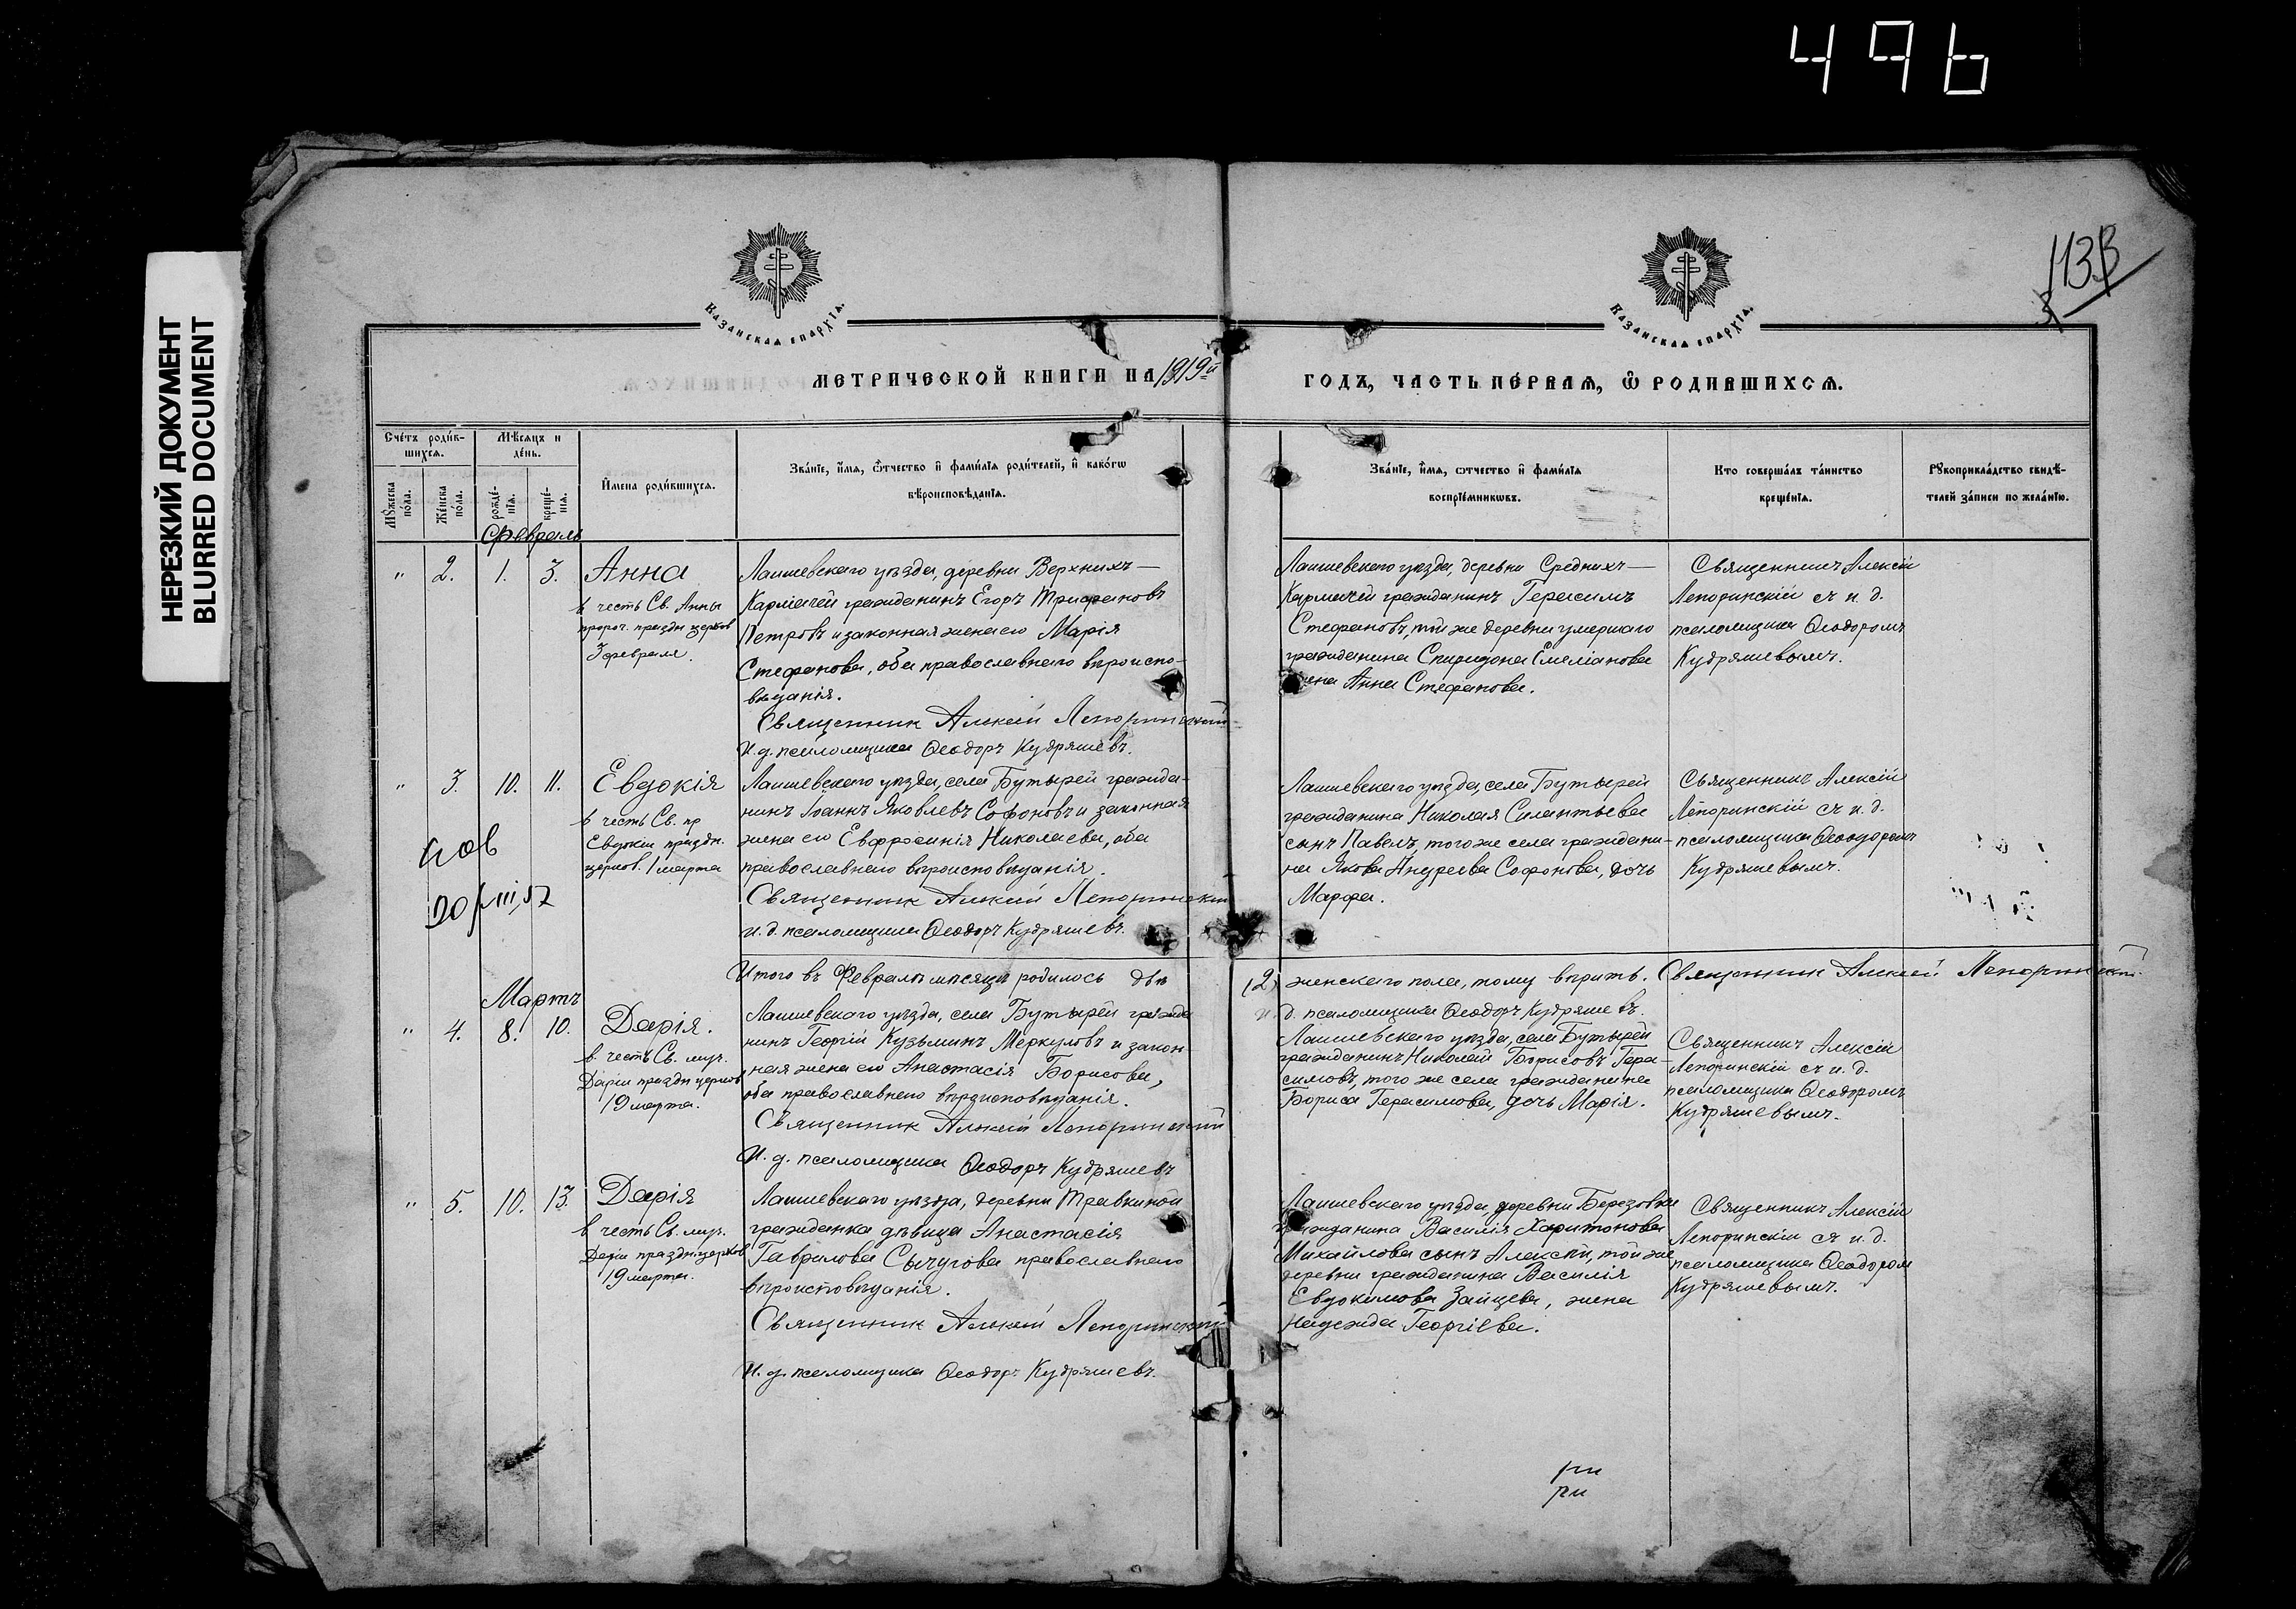 496
НЕРЕЗКИЙ ДОКУМЕНТ
BLURRED DOCUMENT
113
Казанская епархїа.
Казанская епархїа.
МЕТРИЧЕСКОЙ КНИГИ НА 1919й
ГОДЪ, ЧАСТЬ ПЕРВАЯ, Ѿ РОДИВШИХСЯ.
Счётъ родив-
шихся.
Мѣсяцъ и
день.
Мужеска
пола.
Женска
пола.
рожде-
нїя.
креще-
нїя.
Имена родившихся.
Званїе, имя, отчество и фамилїя родителей, и какогѡ
вѣроисповѣданїя.
Званїе, имя, отчество и фамилїя
воспрїемникѡвъ.
Кто совершалъ таинство
крещенїя.
Рꙋкоприкладство свидѣ-
телей записи по желанїю.
Февраль
" 2. 1. 3. Анна
в честь Св. Анны
пророч. праздн церков
3 февраля.
Лаишевскаго уѣзда, деревни Верхнихъ—
Кармачей гражданинъ Егоръ Трифановъ
Петровъ и законная жена его Марія
Стефанова, оба православнаго вѣроиспо-
вѣданія.
Священник Алексій Лепоринскій
И. д. псаломщика Ѳеодоръ Кудряшевъ.
Лаишевскаго уѣзда, деревни Среднихъ—
Кармачей гражданинъ Герасимъ
Стефановъ, той же деревни умершаго
гражданина Спиридона Емеліанова
жена Анна Стефанова.
Священникъ Алексій
Лепоринскій съ и. д.
псаломщика Ѳеодоромъ
Кудряшевымъ.
" 3. 10. 11. Евдокія
в честь Св. пр
Евдокіи праздн.
церков. 1 марта
Лаишевскаго уѣзда, села Бутырей гражда-
нинъ Іоаннъ Яковлевъ Софоновъ и законная
жена его Евфросинія Николаева, оба
православнаго вѣроисповѣданія.
Священник Алексій Лепоринскій
и. д. псаломщика Ѳеодоръ Кудряшевъ.
Лаишевскаго уѣзда, села Бутырей
гражданина Николая Силантьева
сынъ Павелъ, того же села граждани-
на Якова Андреева Софонова, дочь
Марфа.
Священникъ Алексій
Лепоринскій съ и. д.
псаломщика Ѳеодоромъ
Кудряшевымъ.
20/VIII,57
Итого въ Февралѣ мѣсяцѣ родилось двѣ
(2) женскаго пола, тому вѣрить. Священник Алексій Лепоринскій.
и. д. псаломщика Ѳеодоръ Кудряшевъ.
Мартъ
" 4. 8. 10. Дарія.
в честь Св. муч.
Даріи праздн церков
19 марта.
Лаишевскаго уѣзда, села Бутырей гражда
нинъ Георгій Кузьминъ Меркуловъ и закон-
ная жена его Анастасія Борисова,
оба православнаго вѣроисповѣданія.
Священник Алексій Лепоринскій
И. д. псаломщика Ѳеодоръ Кудряшевъ
Лаишевскаго уѣзда, села Бутырей
гражданинъ Николай Борисовъ Гера-
симовъ, того же села гражданина
Бориса Герасимова, дочь Марія.
Священникъ Алексій
Лепоринскій съ и. д.
псаломщика Ѳеодоромъ
Кудряшевымъ.
" 5. 10. 13. Дарія
в честь Св. муч.
Даріи праздн. церков
19 марта.
Лаишевскаго уѣзда, деревни Травкиной
гражданка дѣвица Анастасія
Гаврилова Сычугова православнаго
вѣроисповѣданія.
Священник Алексій Лепоринскій
И. д. псаломщика Ѳеодоръ Кудряшевъ.
Лаишевскаго уѣзда деревни Березовки
гражданина Василія Харитонова
Михайлова сынъ Алексѣй, той же
деревни гражданина Василія
Евдокимова Зайцева, жена
Надежда Георгіева.
Священникъ Алексій
Лепоринскій съ и. д.
псаломщика Ѳеодором
Кудряшевымъ.